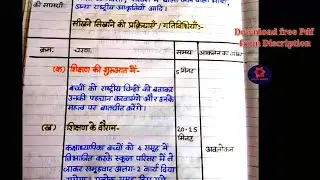 की सामग्री:
अन्य राष्ट्रीय आकृतियाँ आदि।
सीखने सिखाने की प्रक्रियाएं / गतिविधियाँ:-
क्रम: चरण. समय: आकलन का
Download free Pdf
from Discription
(क) शिक्षण की शुरूआत में- 5 मिनट
बच्चों को राष्ट्रीय चिन्हों की बताकर
उनकी पहचान करवाएंगे और उनके
महत्व पर बातचीत करेंगे।
(ख) शिक्षण के दौरान- 20-25
मिनट अवलोकन
कक्षाध्यापिका बच्चों को 4 समूह में
विभाजित करके स्कूल परिसर में ले
जाकर समूहवार अलग-2 कार्य दिया